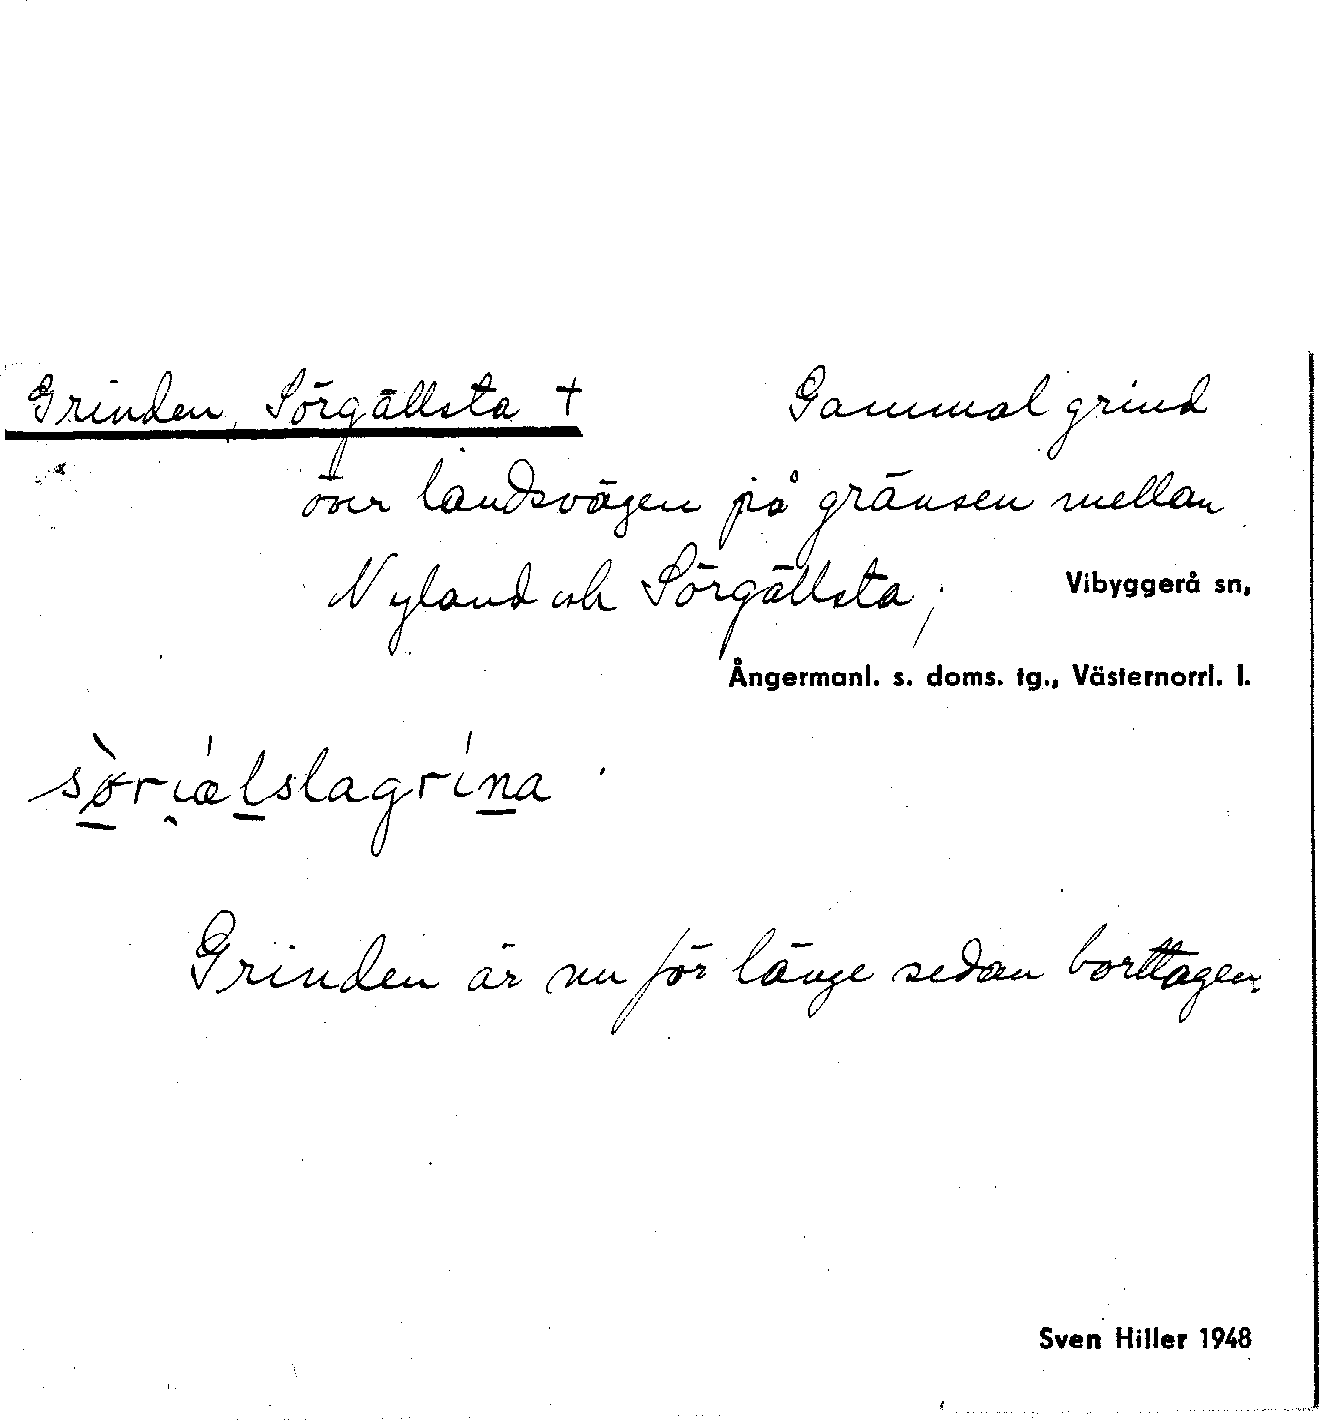 Grinden, Sörgällsta † Gammal grind
över landsvägen på gränsen mellan
Nyland och Sörgällsta; Vibyggerå sn,
Ångermanl. s. doms. tg., Västernorrl. l.
Grinden är nu för länge sedan borttagen.
Sven Hiller 1948